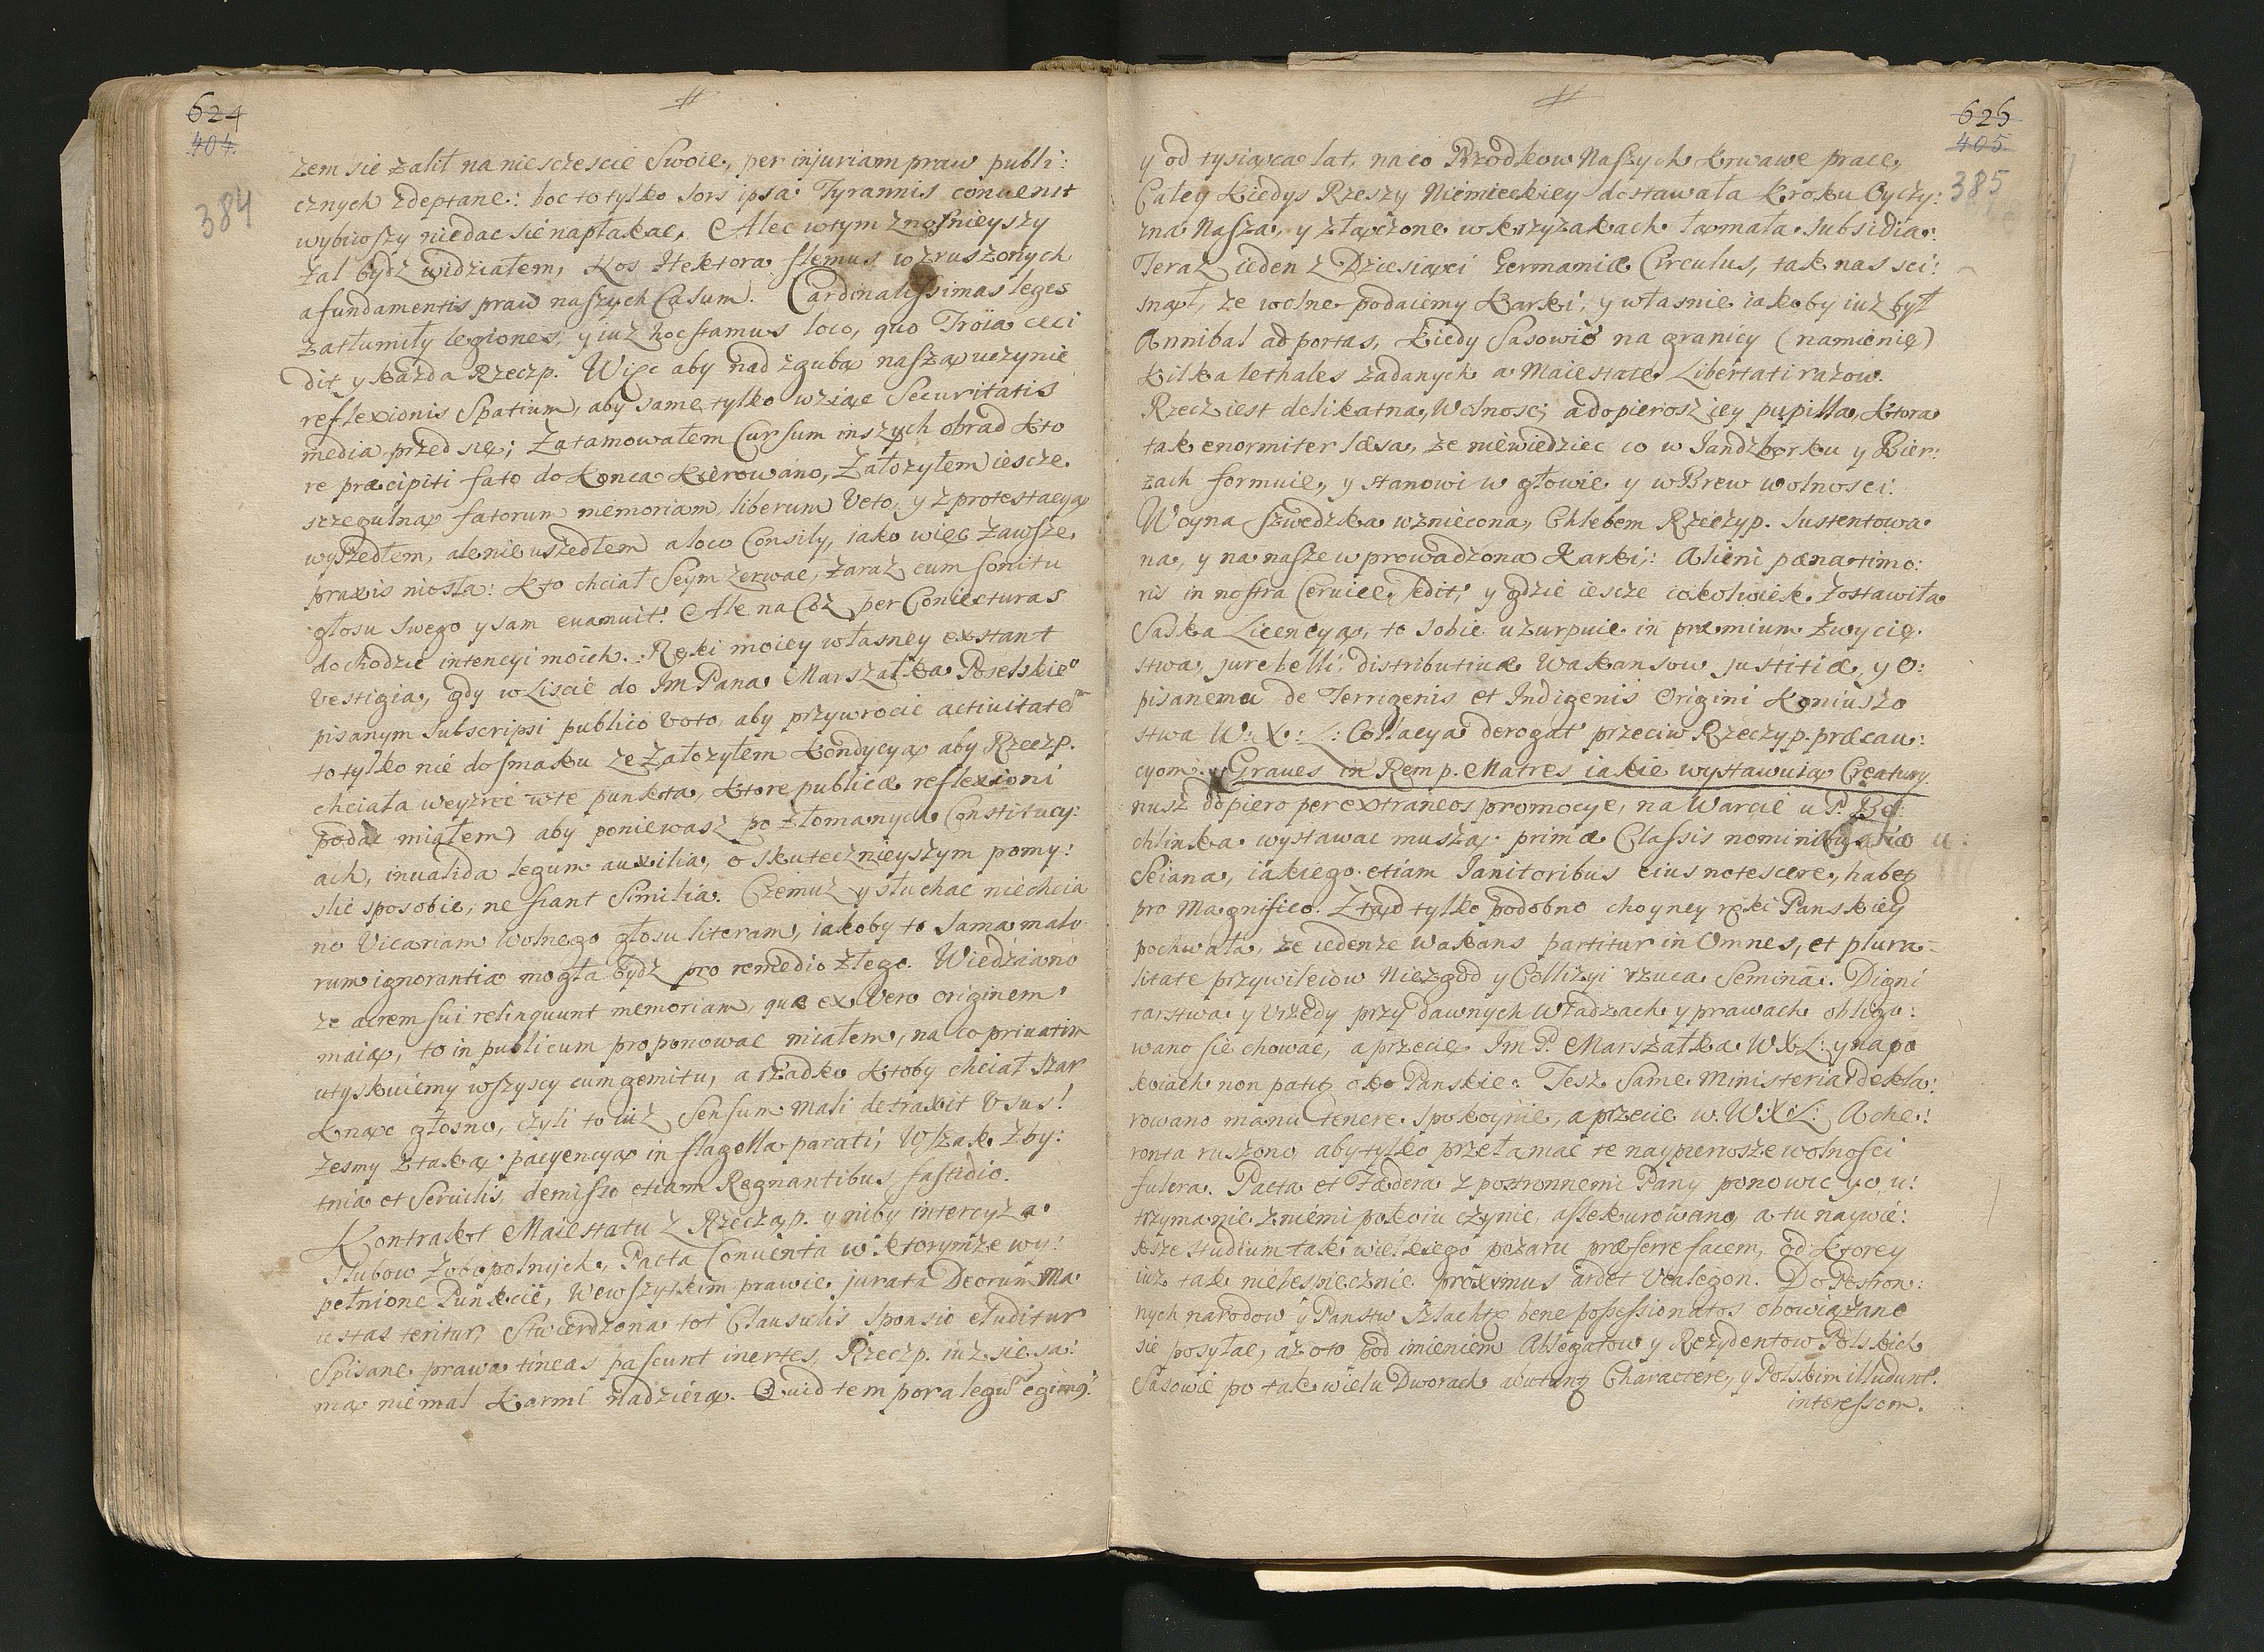 624
404.
384
#
zem sie zalił na niesczescie Swoie, per injuriam praw publi:
cznych zdeptane: boc to tylko sors ipsa Tyrannis convenit
wybiioszy niedac sie napłakac. Alec w tym znosnieyszy
zal bydz widziałem, kos Hektora flemus wzruszonych
a fundamentis praw naszych Casum. Cardinalissimas leges
zatłumiły legiones, y iuz hoc stamus loco, quo Troia ceci
dit y kazda Rzeczp. Więc aby nad zgubą naszą uczynic
reflexionis Spatium, aby same tylko wziąc Securitatis
media przed się; Zatamowałem Cursum inszych obrad kto
re præcipiti fato do konca kierowano, Załozyłem iescze
szczegulną fatorum memoriam, liberum Veto, y z protestacyą
wyszedłem, ale nie uszedłem a loco Consily, iako więc zawsze
praxis niosła: Kto chciał Seym zerwac, zaraz cum sonitu
głosu swego y sam evanuit. Ale na Coz per Coniecturas
dochodzic intencyi moich. Ręki moiey własney extant
Vestigia, gdy w Liscie do Im Pana Marszałka Poselskieo
pisanym Subscripsi publico voto, aby przywrocic activitatem
to tylko nie do smaku ze Załozyłem kondycyą aby Rzeczp.
chciała weyzrec w te punkta, ktore publicæ reflexioni
podac miałem, aby poniewasz po złomanych Constitucy:
ach, invalida legum auxilia, o skutecznieyszym pomy:
slic sposobie, ne fiant Similia. Czemuz y słuchac niechcia
no Vicariam wolnego głosu literam, iakoby to sama malo
rum ignorantia mogła bydz pro remedio złego. Wiedziano
ze acrem sui relinquunt memoriam, quæ ex Vero originem
maią, to in publicum proponowac miałem, na co privatim
utyskuiemy wszyscy cum gemitu, a rzadko ktoby chciał szar
knąc głosno, czyli to iuz Sensum mali detraxit Usus!
Zesmy z taką pacyencyą in flagella parati, Wszak zby:
tnia et Servilis, demisso etiam Regnantibus fastidio.
Kontrakt Maiestatu z Rzecząp. y niby intercyza
slubow zobopolnych, Pacta Conventa w ktorymze wy:
pełnione Punkcie, Wewszytkim prawie jurata Deorum Ma
iestas teritur, Stwierdzona tot Clausulis Sponsio eluditur
Spisane prawa tineas pascunt inertes, Rzeczp. iuz sie sa:
mą niemal karmi nadzieią. Quid tempora legum egimus
626
405
385
#
y od tysiąca lat, na co Przodkow Naszych krwawe prace,
Całey kiedys Rzeszy Niemieckiey dostawała kroku Oyczy:
zna Nasza, y złączone w krzyzakach łamała Subsidia:
Teraz ieden z Dziesiąci Germaniæ Circulus, tak nas sci:
snął, ze wolne podaiemy karki, y własnie iakoby iuz był
Annibal ad portas, kiedy Sasowie na granicy (namienię)
kilka lethales zadanych a Maiestate Libertati razow.
Rzecz iest delikatna, Wolnosc, a dopierosz iey pupilla, ktora
tak enormiter læsa, ze niewiedziec co w Jandzborku y Bier:
zach formuie, y stanowi w głowie y w Brew wolnosci.
Woyna szwedzka wzniecona, Chlebem Rzeczyp. Sustentowa
na, y na nasze wprowadzona karki: Alieni pæna timo:
ris in nostra Cervice sedit; y gdzie iescze cokolwiek zostawiła
Saska Licencyą, to sobie uzurpuie in præmium zwycię.
stwa, jure belli. distributivæ Wakansow justitiæ, y O:
pisanemu de Terrigenis et Indigenis Origini koniuszo
stwa W: X: L: Collacya derogat przeciw Rzeczyp. præcau:
cyom. Graves in Remp. Matres iakie wystawuią Creatury
nusz dopiero per extraneos promocye, na Warcie u P. Be
chlinka wystawac muszą primæ Classis nominibus
Seiana, iakiego etiam Janitoribus eius notescere, habetur
pro Magnifico. Ztąd tylko podobno choyney ręki Panskiey
pochwała, ze iedenze wakans partitur in Omnes, et plura-
litate przywileiow Niezgod y Collizyi rzuca Semina. Digni
tarstwa y Urzędy przy dawnych władzach y prawach obligo:
wano sie chowac, a przecię Im P. Marszałka WXL: y na po
koiach non patitur oko Panskie. Tesz same Ministeria dekla:
rowano manu tenere. Spokoynie, a przecie w. W:X:L: Ache:
ronta ruszono aby tylko przełamac te naypierwsze wolnosci
fulcra. Pacta et Fædera z postronnemi Pany ponowic y o u:
trzymanie z niemi pokoiu czynic, assekurowano, a tu naywię:
ksze studium tak wielkiego pozaru præferre facem, od ktorey
iuz tak niebespiecznie proximus ardet Ucalegon. Do Postron:
nych narodow y Panstw Szlachtę bene possessionatos obowiązano
sie posyłac, az oto pod imieniem Ablegatow y Rezydentow Polskich
Sasowie po tak wielu Dworach abutuntur Charactere, y Polskim illudunt.
interessom.